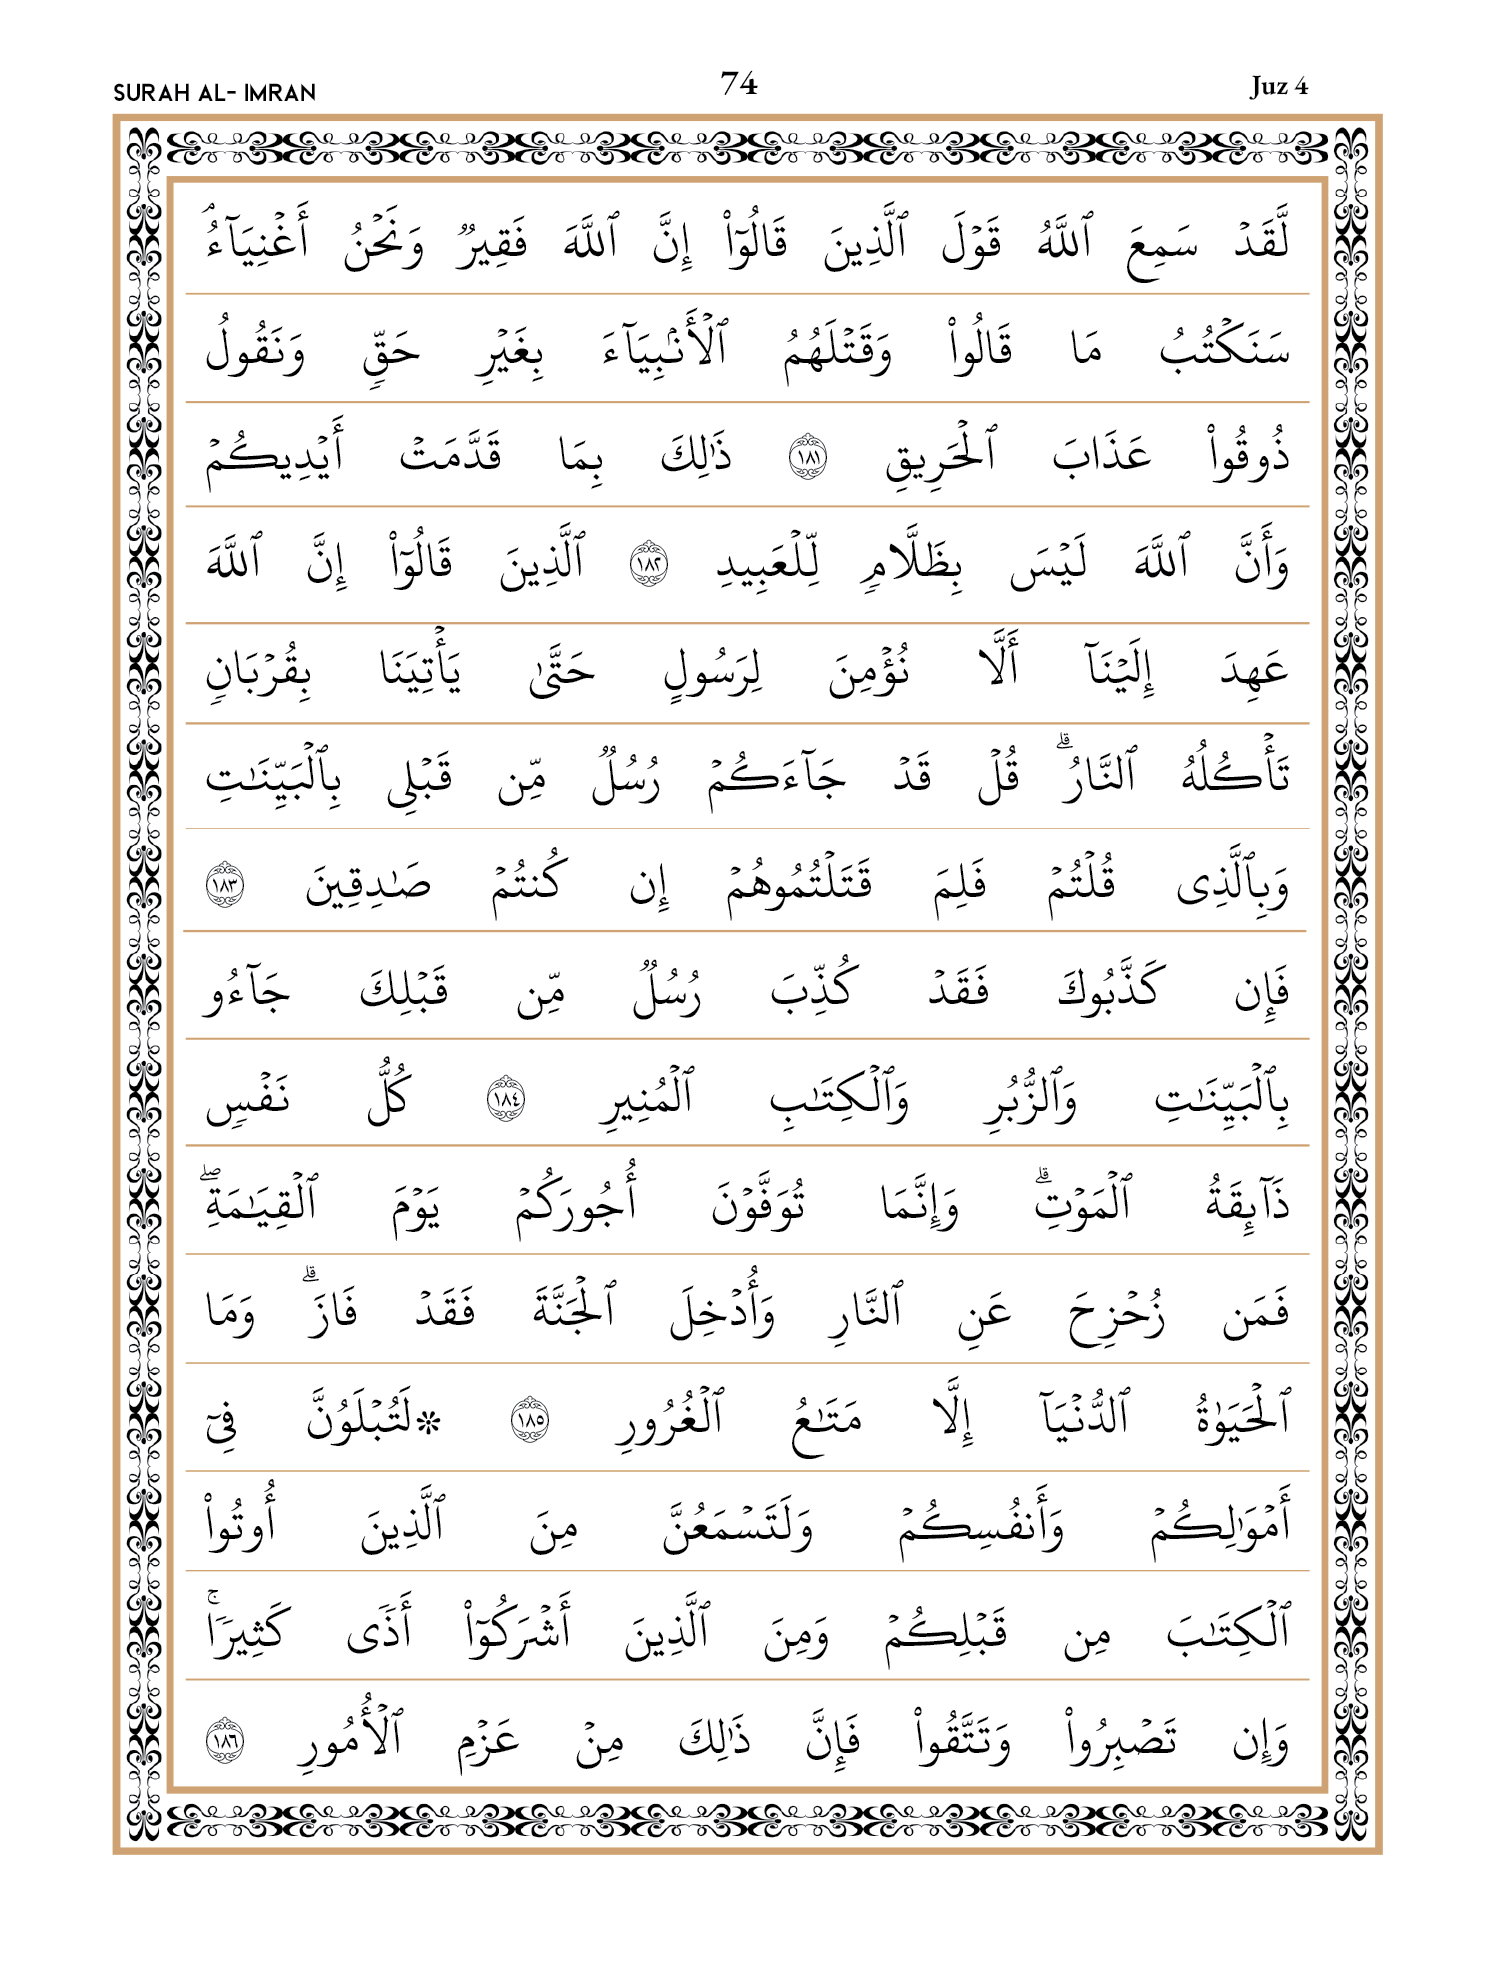 SURAH AL- IMRAN 74 Juz 4
لَّقَدۡ سَمِعَ ٱللَّهُ قَوۡلَ ٱلَّذِينَ قَالُوٓاْ إِنَّ ٱللَّهَ فَقِيرٞ وَنَحۡنُ أَغۡنِيَآءُۘ
سَنَكۡتُبُ مَا قَالُواْ وَقَتۡلَهُمُ ٱلۡأَنۢبِيَآءَ بِغَيۡرِ حَقّٖ وَنَقُولُ
ذُوقُواْ عَذَابَ ٱلۡحَرِيقِ ١٨١ ذَٰلِكَ بِمَا قَدَّمَتۡ أَيۡدِيكُمۡ
وَأَنَّ ٱللَّهَ لَيۡسَ بِظَلَّامٖ لِّلۡعَبِيدِ ١٨٢ ٱلَّذِينَ قَالُوٓاْ إِنَّ ٱللَّهَ
عَهِدَ إِلَيۡنَآ أَلَّا نُؤۡمِنَ لِرَسُولٍ حَتَّىٰ يَأۡتِيَنَا بِقُرۡبَانٖ
تَأۡكُلُهُ ٱلنَّارُۗ قُلۡ قَدۡ جَآءَكُمۡ رُسُلٞ مِّن قَبۡلِي بِٱلۡبَيِّنَٰتِ
وَبِٱلَّذِي قُلۡتُمۡ فَلِمَ قَتَلۡتُمُوهُمۡ إِن كُنتُمۡ صَٰدِقِينَ ١٨٣
فَإِن كَذَّبُوكَ فَقَدۡ كُذِّبَ رُسُلٞ مِّن قَبۡلِكَ جَآءُو
بِٱلۡبَيِّنَٰتِ وَٱلزُّبُرِ وَٱلۡكِتَٰبِ ٱلۡمُنِيرِ ١٨٤ كُلُّ نَفۡسٖ
ذَآئِقَةُ ٱلۡمَوۡتِۗ وَإِنَّمَا تُوَفَّوۡنَ أُجُورَكُمۡ يَوۡمَ ٱلۡقِيَٰمَةِۖ
فَمَن زُحۡزِحَ عَنِ ٱلنَّارِ وَأُدۡخِلَ ٱلۡجَنَّةَ فَقَدۡ فَازَۗ وَمَا
ٱلۡحَيَوٰةُ ٱلدُّنۡيَآ إِلَّا مَتَٰعُ ٱلۡغُرُورِ ١٨٥ *لَتُبۡلَوُنَّ فِيٓ
أَمۡوَٰلِكُمۡ وَأَنفُسِكُمۡ وَلَتَسۡمَعُنَّ مِنَ ٱلَّذِينَ أُوتُواْ
ٱلۡكِتَٰبَ مِن قَبۡلِكُمۡ وَمِنَ ٱلَّذِينَ أَشۡرَكُوٓاْ أَذٗى كَثِيرٗاۚ
وَإِن تَصۡبِرُواْ وَتَتَّقُواْ فَإِنَّ ذَٰلِكَ مِنۡ عَزۡمِ ٱلۡأُمُورِ ١٨٦